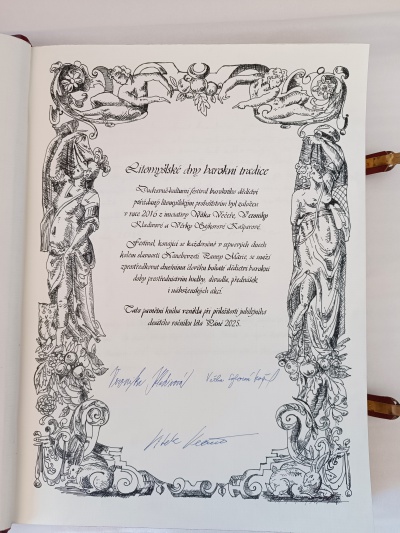 Litomyšlské dny barokní tradice
Duchovně-kulturní festival barokního dědictví
pořádaný litomyšlským proboštstvím byl založen
v roce 2016 z iniciativy Vítka Večeře, Veroniky
Kladivové a Věrky Sýkorové Kašparové.
Festival, konající se každoročně v srpnových dnech
kolem slavnosti Nanebevzetí Panny Marie, se snaží
zprostředkovat dnešnímu člověku bohaté dědictví barokní
doby prostřednictvím hudby, divadla, přednášek
i náboženských akcí.
Tato pamětní kniha vznikla při příležitosti jubilejního
desátého ročníku léta Páně 2025.